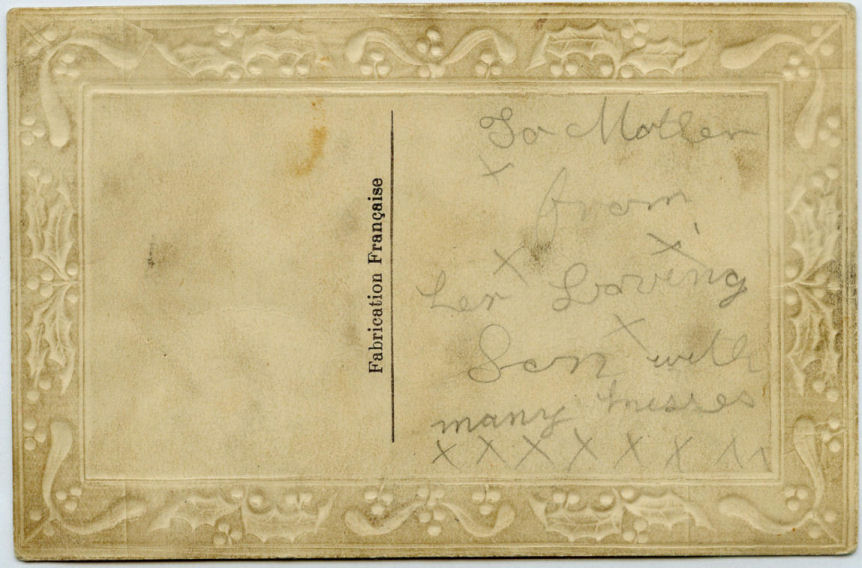 Fabrication Française
To Mother
x
from
x x
her Loving
x
Son with
many kisses
x x x x x x x x